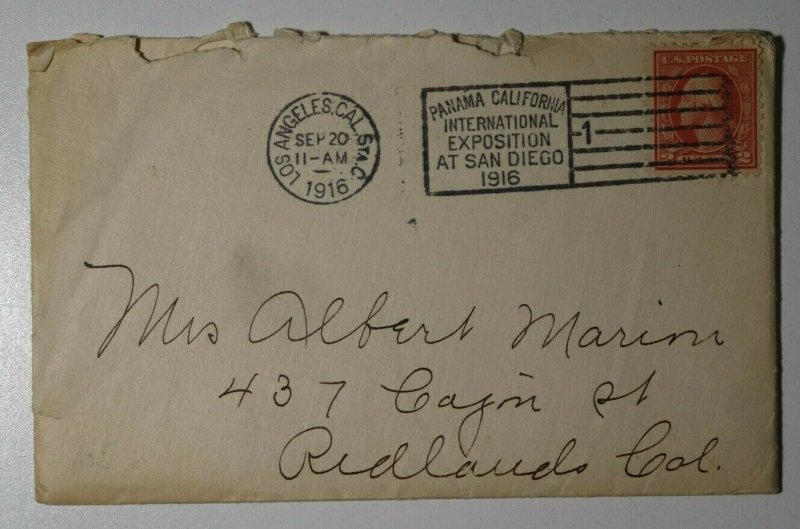 LOS ANGELES, CAL. STA. C.
SEP 20
11-AM
1916
PANAMA CALIFORNIA
INTERNATIONAL
EXPOSITION
AT SAN DIEGO
1916
1
U.S. POSTAGE
2 2
Mrs Albert Marion
437 Cajon St
Redlands Cal.